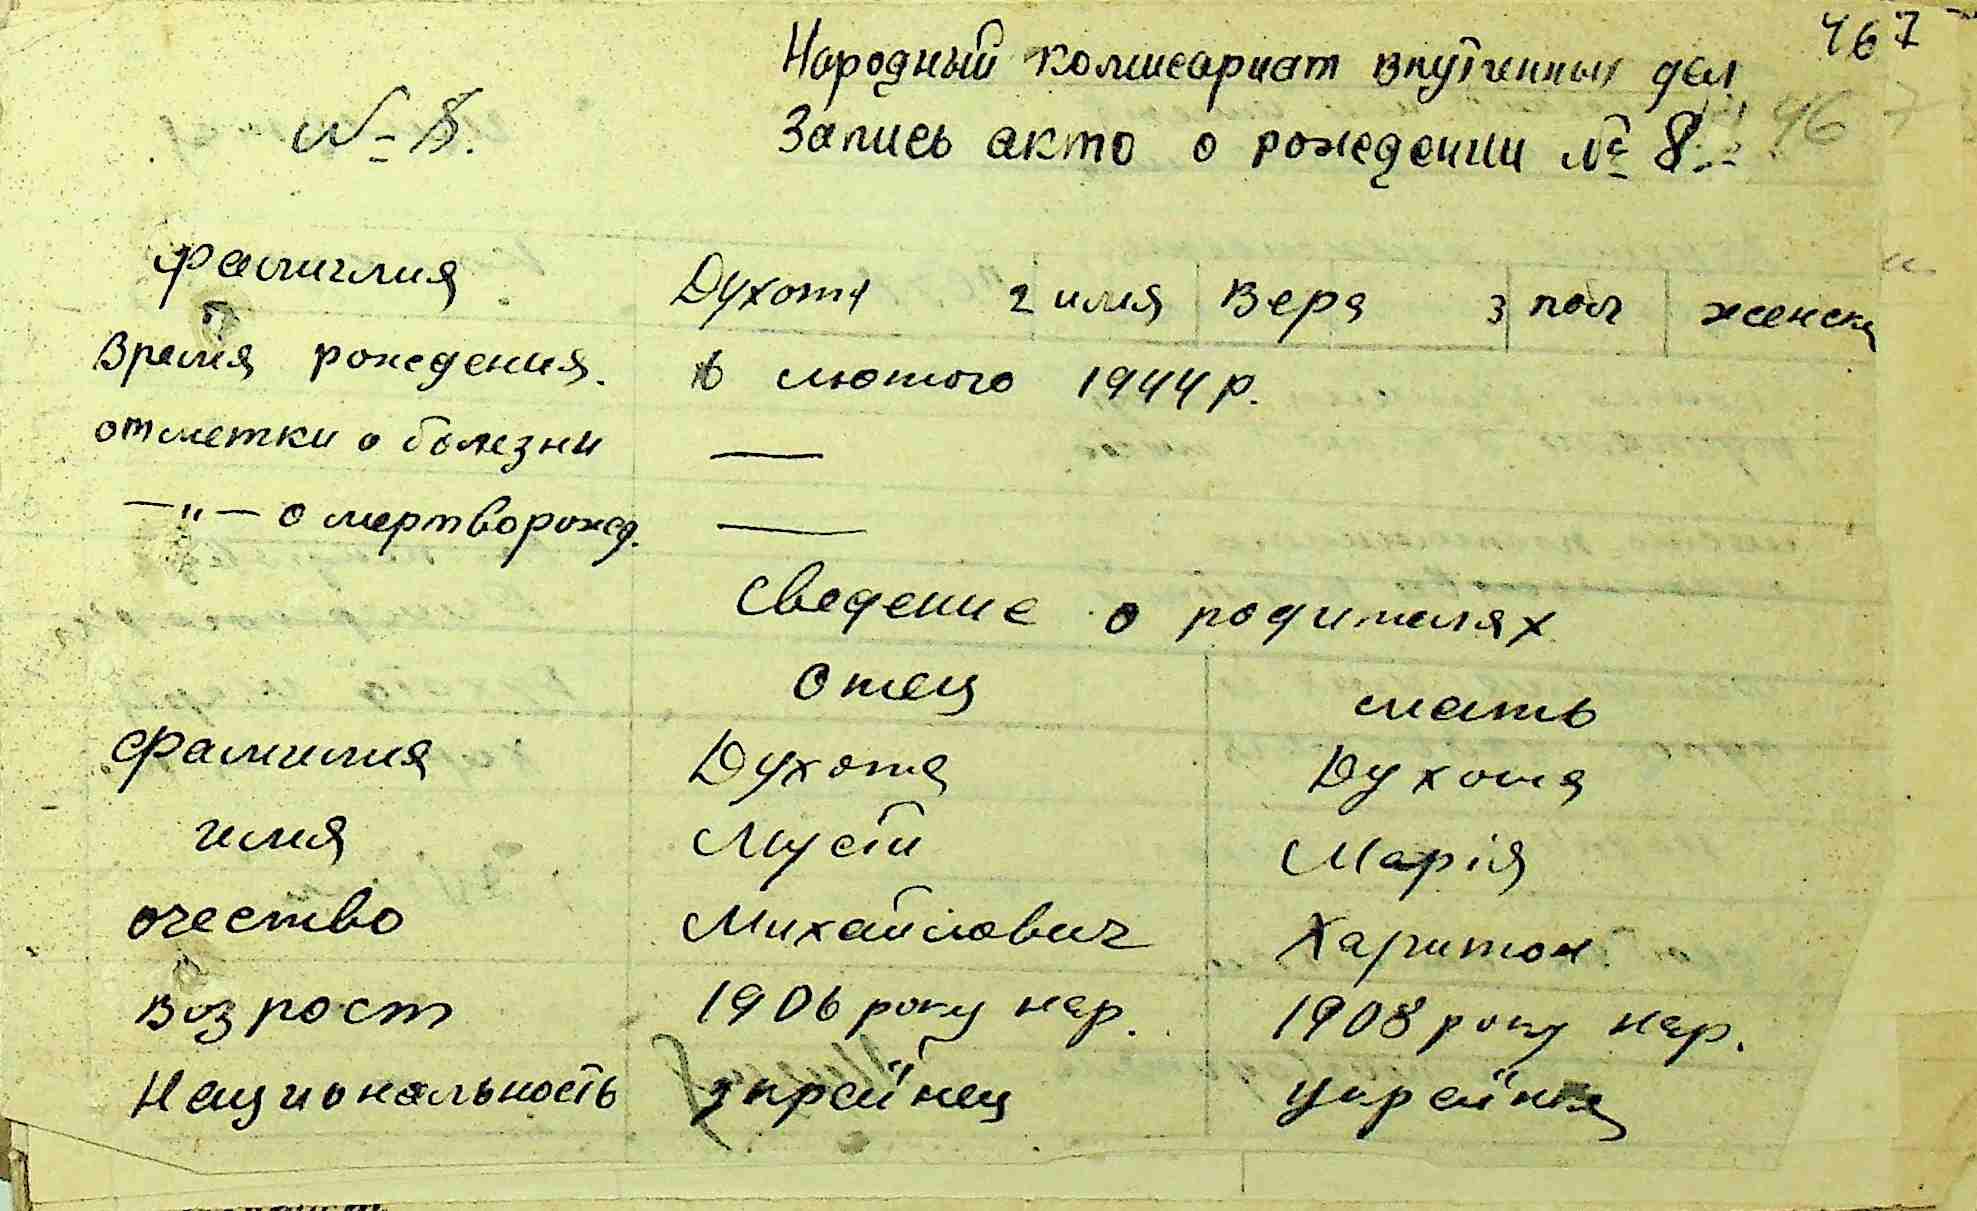 467
Народный комисариат внутренных дел
№ 8.
Запись акто о рождении № 8
467
фамилия Духота 2 имя Вера 3 пол женска
Время рождения. 6 лютого 1944 р.
отметки о болезни —
—"— о мертворожд. —
сведение о родителях
отец мать
фамилия Духота Духота
имя Мусій Марія
очество Михайлович Харитон.
возрост 1906 року нар. 1908 року нар.
Национальность українец українка